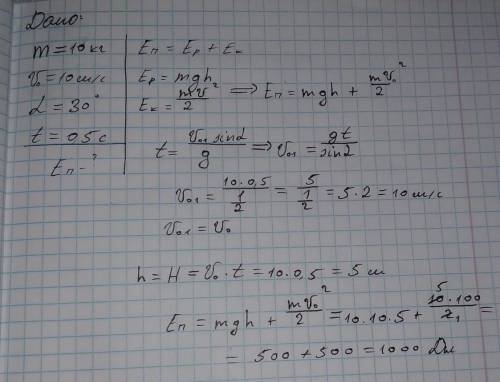 Дано:
m = 10 кг
v₀ = 10 м/с
α = 30°
t = 0,5 с
Eп - ?
Eп = Ep + Eк
Ep = mgh
Eк = mv²/2 ⟹ Eп = mgh + mv₀²/2
t = v₀₁ sinα/g ⟹ v₀₁ = gt/sinα
v₀₁ = 10·0,5/(1/2) = 5/(1/2) = 5·2 = 10 м/с
v₀₁ = v₀
h = H = v₀·t = 10·0,5 = 5 м
Eп = mgh + mv₀²/2 = 10·10·5 + 5 10·100/2 1 =
= 500 + 500 = 1000 Дж